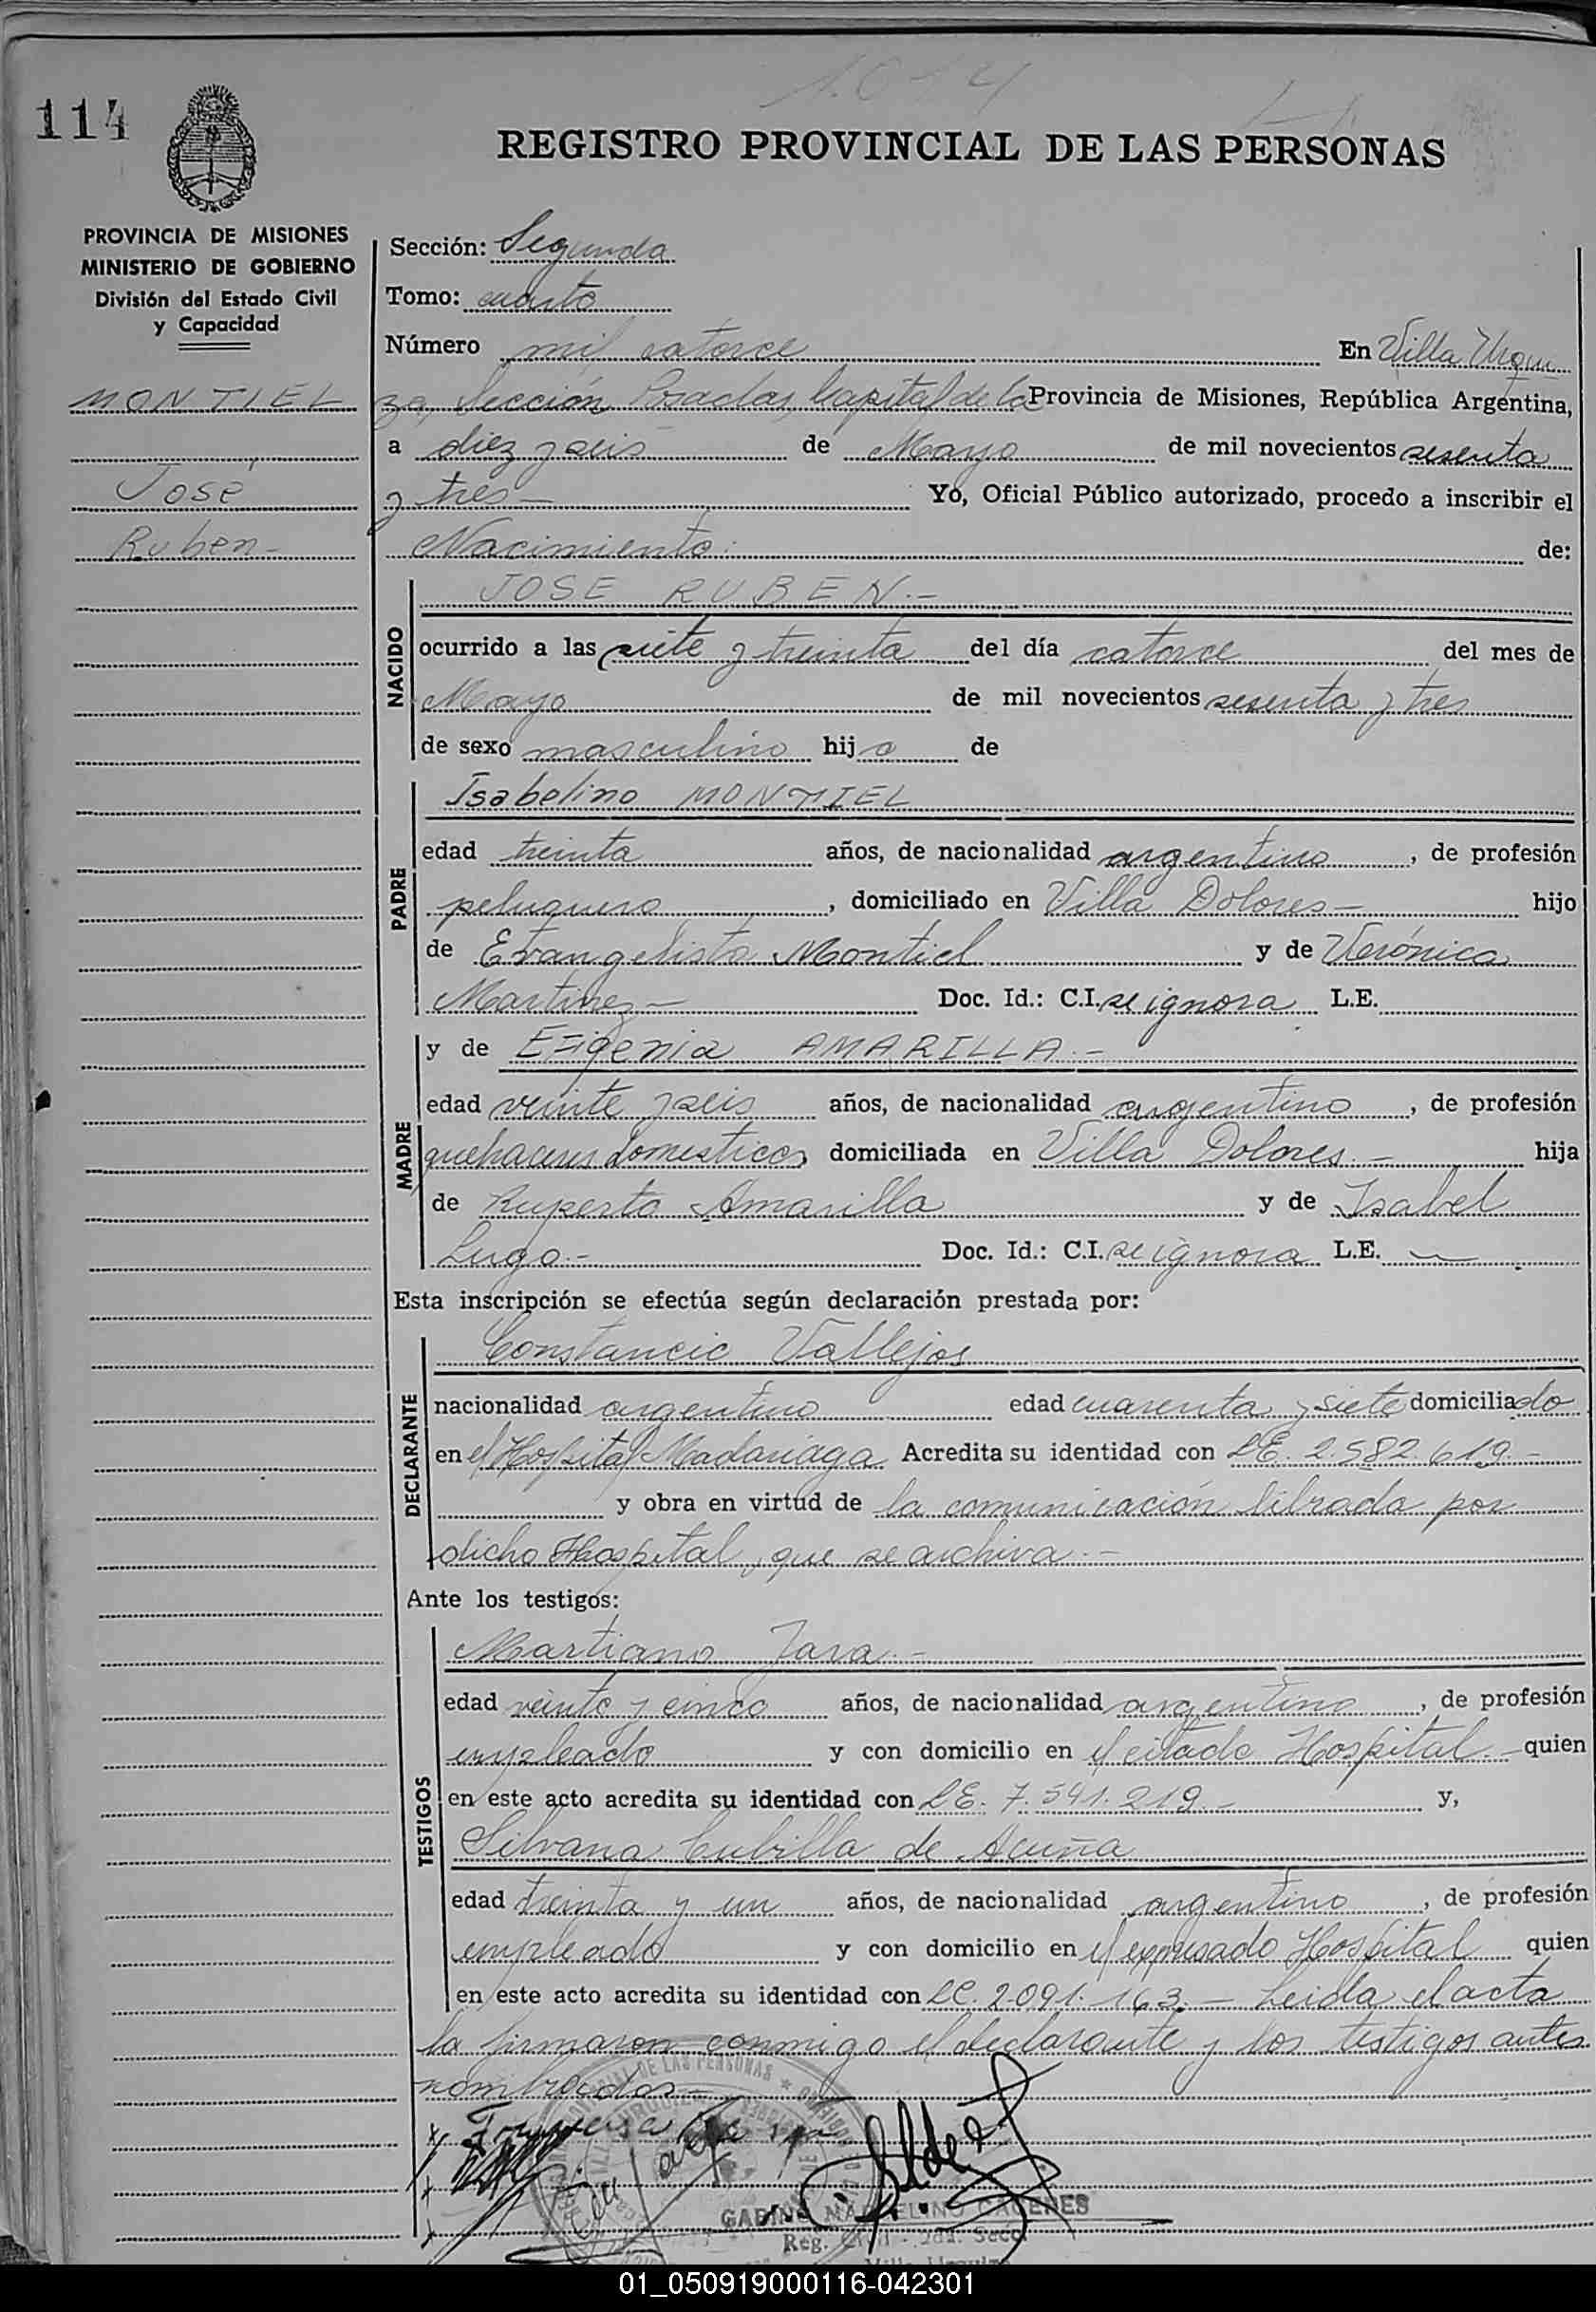 114
REGISTRO PROVINCIAL DE LAS PERSONAS
PROVINCIA DE MISIONES
MINISTERIO DE GOBIERNO
División del Estado Civil
y Capacidad
MONTIEL
José
Ruben-
Sección: Segunda
Tomo: cuarto
Número mil catorce En Villa Urqui
za, Sección Posadas, Capital de la Provincia de Misiones, República Argentina,
a diez y seis de Mayo de mil novecientos sesenta
y tres- Yo, Oficial Público autorizado, procedo a inscribir el
Nacimiento de:
NACIDO
JOSE RUBEN.-
ocurrido a las siete y treinta del día catorce del mes de
Mayo de mil novecientos sesenta y tres
de sexo masculino hijo de
PADRE
Isabelino MONTIEL
edad treinta años, de nacionalidad argentino, de profesión
peluquero, domiciliado en Villa Dolores- hijo
de Evangelista Montiel y de Verónica
Martinez- Doc. Id.: C.I. se ignora L.E.
MADRE
y de Efigenia AMARILLA.-
edad veinte y seis años, de nacionalidad argentino, de profesión
quehaceres domesticos domiciliada en Villa Dolores.- hija
de Ruperto Amarilla y de Isabel
Lugo.- Doc. Id.: C.I. se ignora L.E.
Esta inscripción se efectúa según declaración prestada por:
DECLARANTE
Constancio Vallejos
nacionalidad argentino edad cuarenta y siete domiciliado
en el Hospital Madariaga Acredita su identidad con LE. 2.582.619.-
y obra en virtud de la comunicación librada por
dicho Hospital, que se archiva.-
Ante los testigos:
TESTIGOS
Martiano Jara.-
edad veinte y cinco años, de nacionalidad argentino, de profesión
empleado y con domicilio en el citado Hospital.- quien
en este acto acredita su identidad con LE. 7.541.219.- y,
Silvana Cubilla de Acuña
edad treinta y un años, de nacionalidad argentino, de profesión
empleado y con domicilio en el expresado Hospital quien
en este acto acredita su identidad con LC. 2.091.163.- Leida el acta
la firmaron conmigo el declarante y los testigos antes
nombrados-
GABINO MARCELINO CACERES
Reg. Civil - 2da. Secc.
01_050919000116-042301